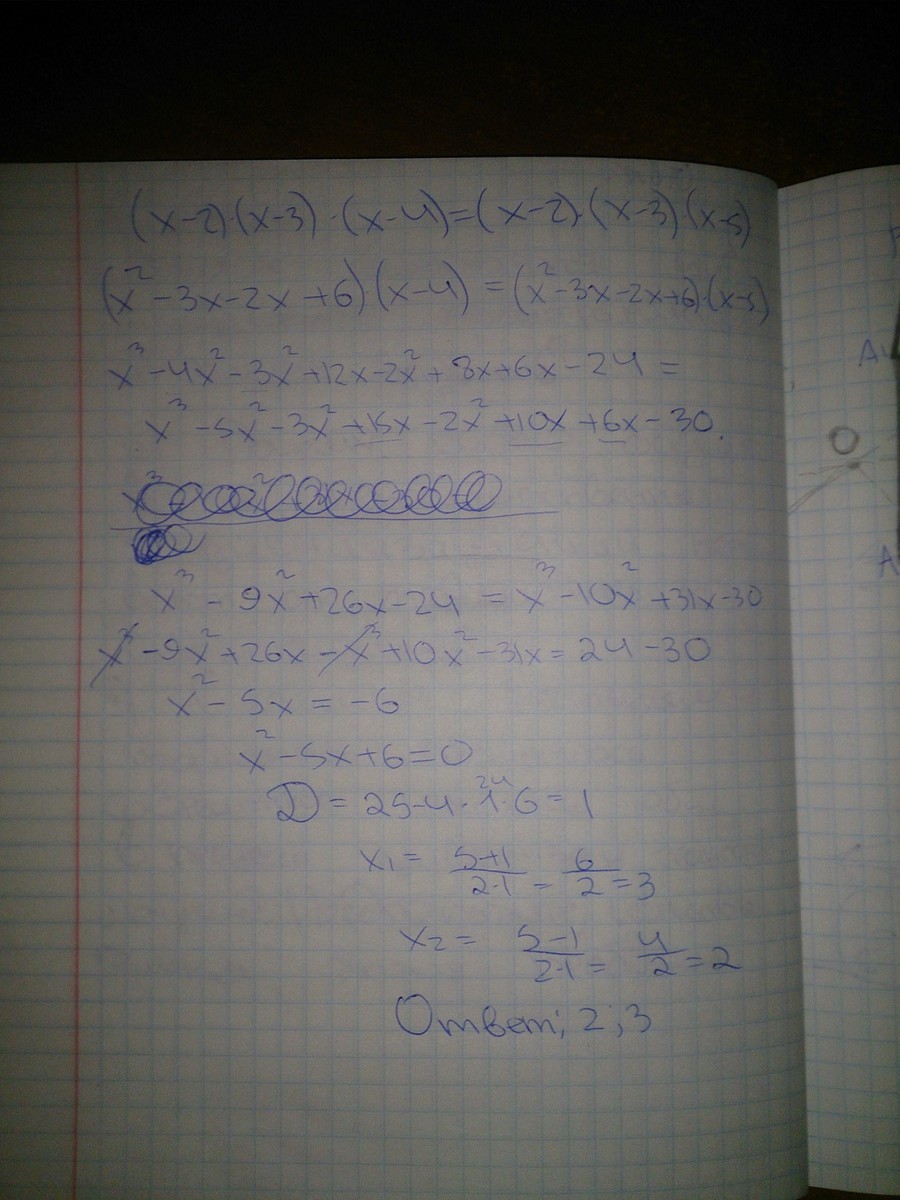 (x-2)·(x-3)·(x-4)=(x-2)·(x-3)(x-5)
(x²-3x-2x+6)(x-4)=(x²-3x-2x+6)·(x-5)
x³-4x²-3x²+12x-2x²+8x+6x-24=
x³-5x²-3x²+15x-2x²+10x+6x-30.
x³-9x²+26x-24=x³-10x²+31x-30
x³-9x²+26x-x³+10x²-31x=24-30
x²-5x=-6
x²-5x+6=0
D=25-4·1·6=1
24
x₁= 5+1/2·1 = 6/2=3
x₂= 5-1/2·1 = 4/2=2
Ответ; 2;3
O
A
A